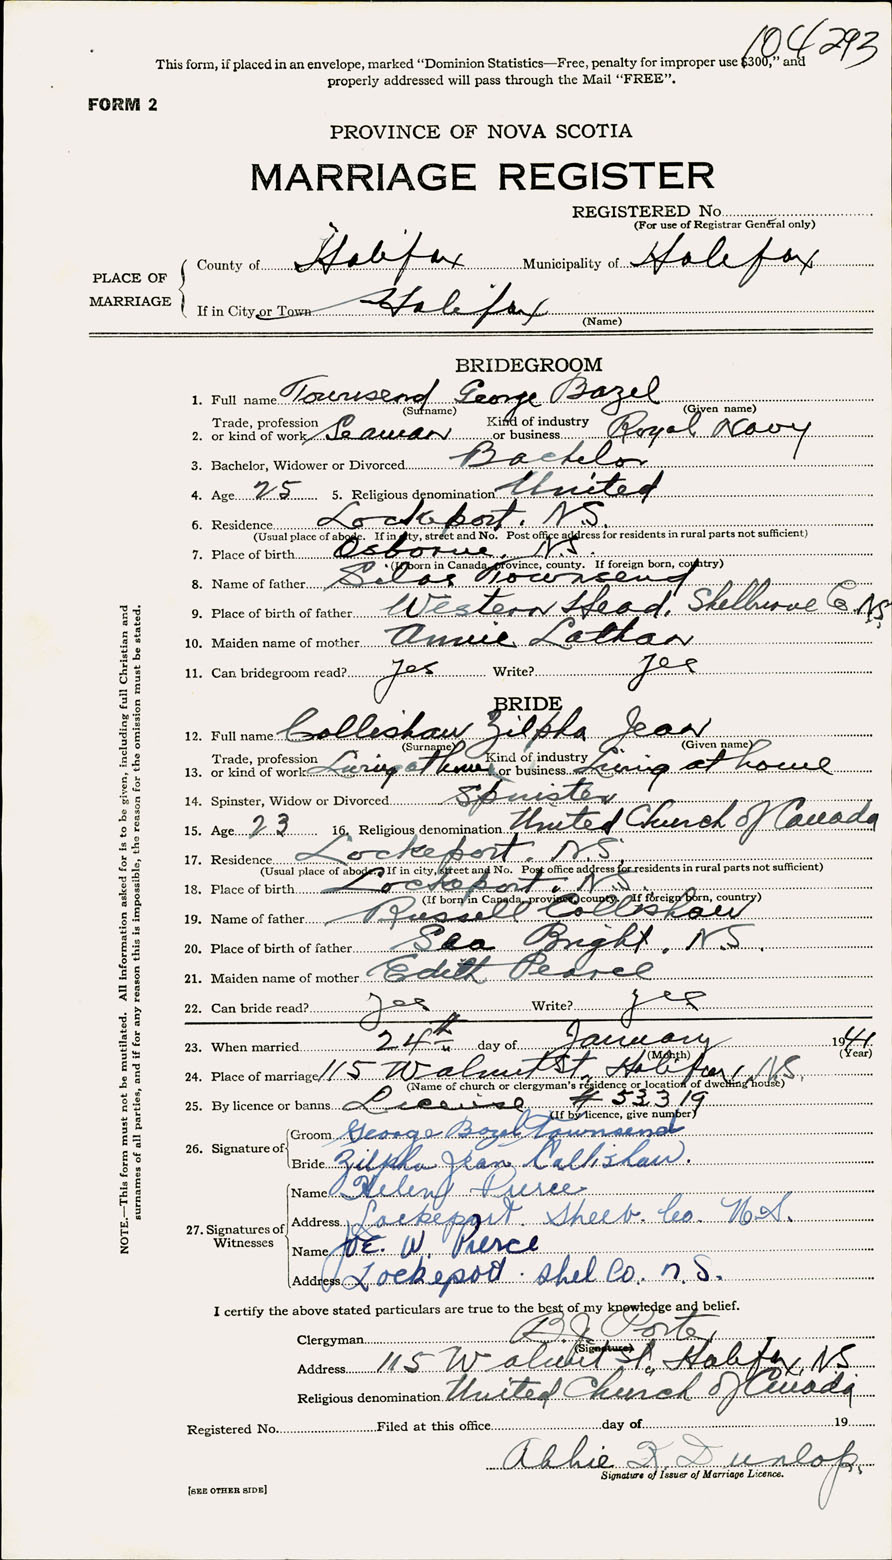 104293
This form, if placed in an envelope, marked “Dominion Statistics—Free, penalty for improper use $300,” and
properly addressed will pass through the Mail “FREE”.
FORM 2
PROVINCE OF NOVA SCOTIA
MARRIAGE REGISTER
REGISTERED No.
(For use of Registrar General only)
PLACE OF MARRIAGE
County of Halifax Municipality of Halifax
If in City or Town Halifax
(Name)
BRIDEGROOM
1. Full name Townsend George Bazel
(Surname) (Given name)
2. Trade, profession or kind of work Seaman Kind of industry or business Royal Navy
3. Bachelor, Widower or Divorced Bachelor
4. Age 25 5. Religious denomination United
6. Residence Lockeport, N.S.
(Usual place of abode. If in city, street and No. Post office address for residents in rural parts not sufficient)
7. Place of birth Osborne, N.S.
(If born in Canada, province, county. If foreign born, country)
8. Name of father Silas Townsend
9. Place of birth of father Western Head, Shelburne Co. N.S.
10. Maiden name of mother Annie Lathan
11. Can bridegroom read? yes Write? yes
BRIDE
12. Full name Collishaw Zilpha Jean
(Surname) (Given name)
13. Trade, profession or kind of work Living at home Kind of industry or business Living at home
14. Spinster, Widow or Divorced Spinster
15. Age 23 16. Religious denomination United Church of Canada
17. Residence Lockeport, N.S.
(Usual place of abode. If in city, street and No. Post office address for residents in rural parts not sufficient)
18. Place of birth Lockeport, N.S.
(If born in Canada, province, county. If foreign born, country)
19. Name of father Russell Collishaw
20. Place of birth of father Sea Bright, N.S.
21. Maiden name of mother Edith Pearce
22. Can bride read? yes Write? yes
23. When married 24th day of January 1941
(Month) (Year)
24. Place of marriage 115 Walnut St., Halifax, N.S.
(Name of church or clergyman's residence or location of dwelling house)
25. By licence or banns License # 53319
(If by licence, give number)
26. Signature of
Groom George Bazel Townsend
Bride Zilpha Jean Collishaw.
27. Signatures of Witnesses
Name Helen Pierce
Address Lockeport. Shelb. Co. N.S.
Name E. W. Pierce
Address Lockeport. Shel Co. N.S.
I certify the above stated particulars are true to the best of my knowledge and belief.
Clergyman B.J. Porter
(Signature)
Address 115 Walnut St., Halifax, NS
Religious denomination United Church of Canada
Registered No. Filed at this office day of 19
Abbie F. Dunlop.
Signature of Issuer of Marriage Licence.
[SEE OTHER SIDE]
NOTE.—This form must not be mutilated. All information asked for is to be given, including full Christian and
surnames of all parties, and if for any reason this is impossible, the reason for the omission must be stated.